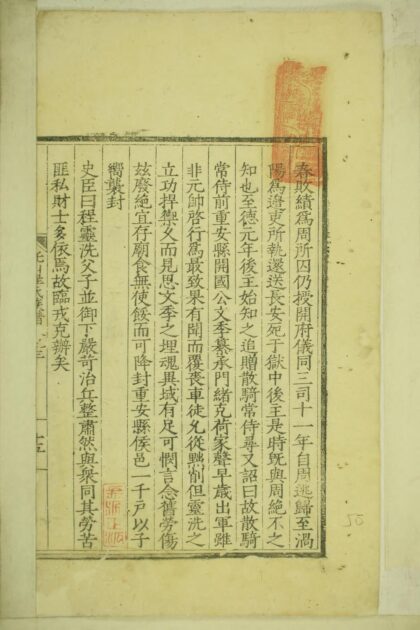 春敗績為周所囚仍授開府儀同三司十一年自周逃歸至渦
陽為邊吏所執還送長安死于獄中後主是時既與周絶不之
知也至德元年後主始知之追贈散騎常侍尋又詔曰故散騎
常侍前重安縣開國公文季纂承門緒克荷家聲早歲出軍雖
非元帥啓行為最致果有聞而覆喪車徒允從黜削但靈洗之
立功捍禦久而見思文季之埋魂異域有足可憫言念舊勞傷
兹廢絶宜存廟食無使餒而可降封重安縣侯邑一千戶以子
嚮襲封
史臣曰程靈洗父子並御下嚴苛治兵整肅然與衆同其勞苦
匪私財士多依焉故臨戎克辦矣